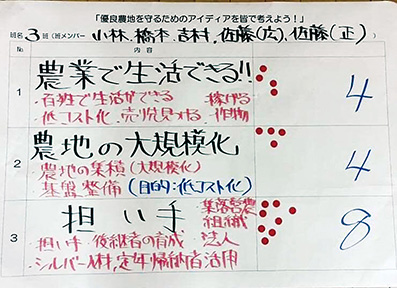 「優良農地を守るためのアイディアを皆で考えよう！」
班名 3班 (班メンバー 小林, 橋本, 吉村, 佐藤(広), 佐藤(正)
No 内容
1
農業で生活できる!!
・百姓で生活ができる 稼げる
・低コスト化、売り先見つける ・作物
4
2
農地の大規模化
・農地の集積(大規模化)
・基盤整備(目的:低コスト化)
4
3
担い手
集落営農
組織
・担い手・後継者の育成 ・法人
・シルバー人材, 定年帰納者活用
8